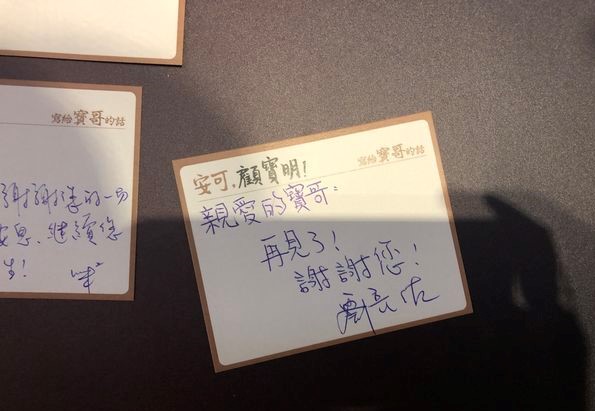 寫給寶哥的話
謝謝您的一切
安息.繼續您
生!
安可,顧寶明!
寫給寶哥的話
親愛的寶哥:
再見了!
謝謝您!